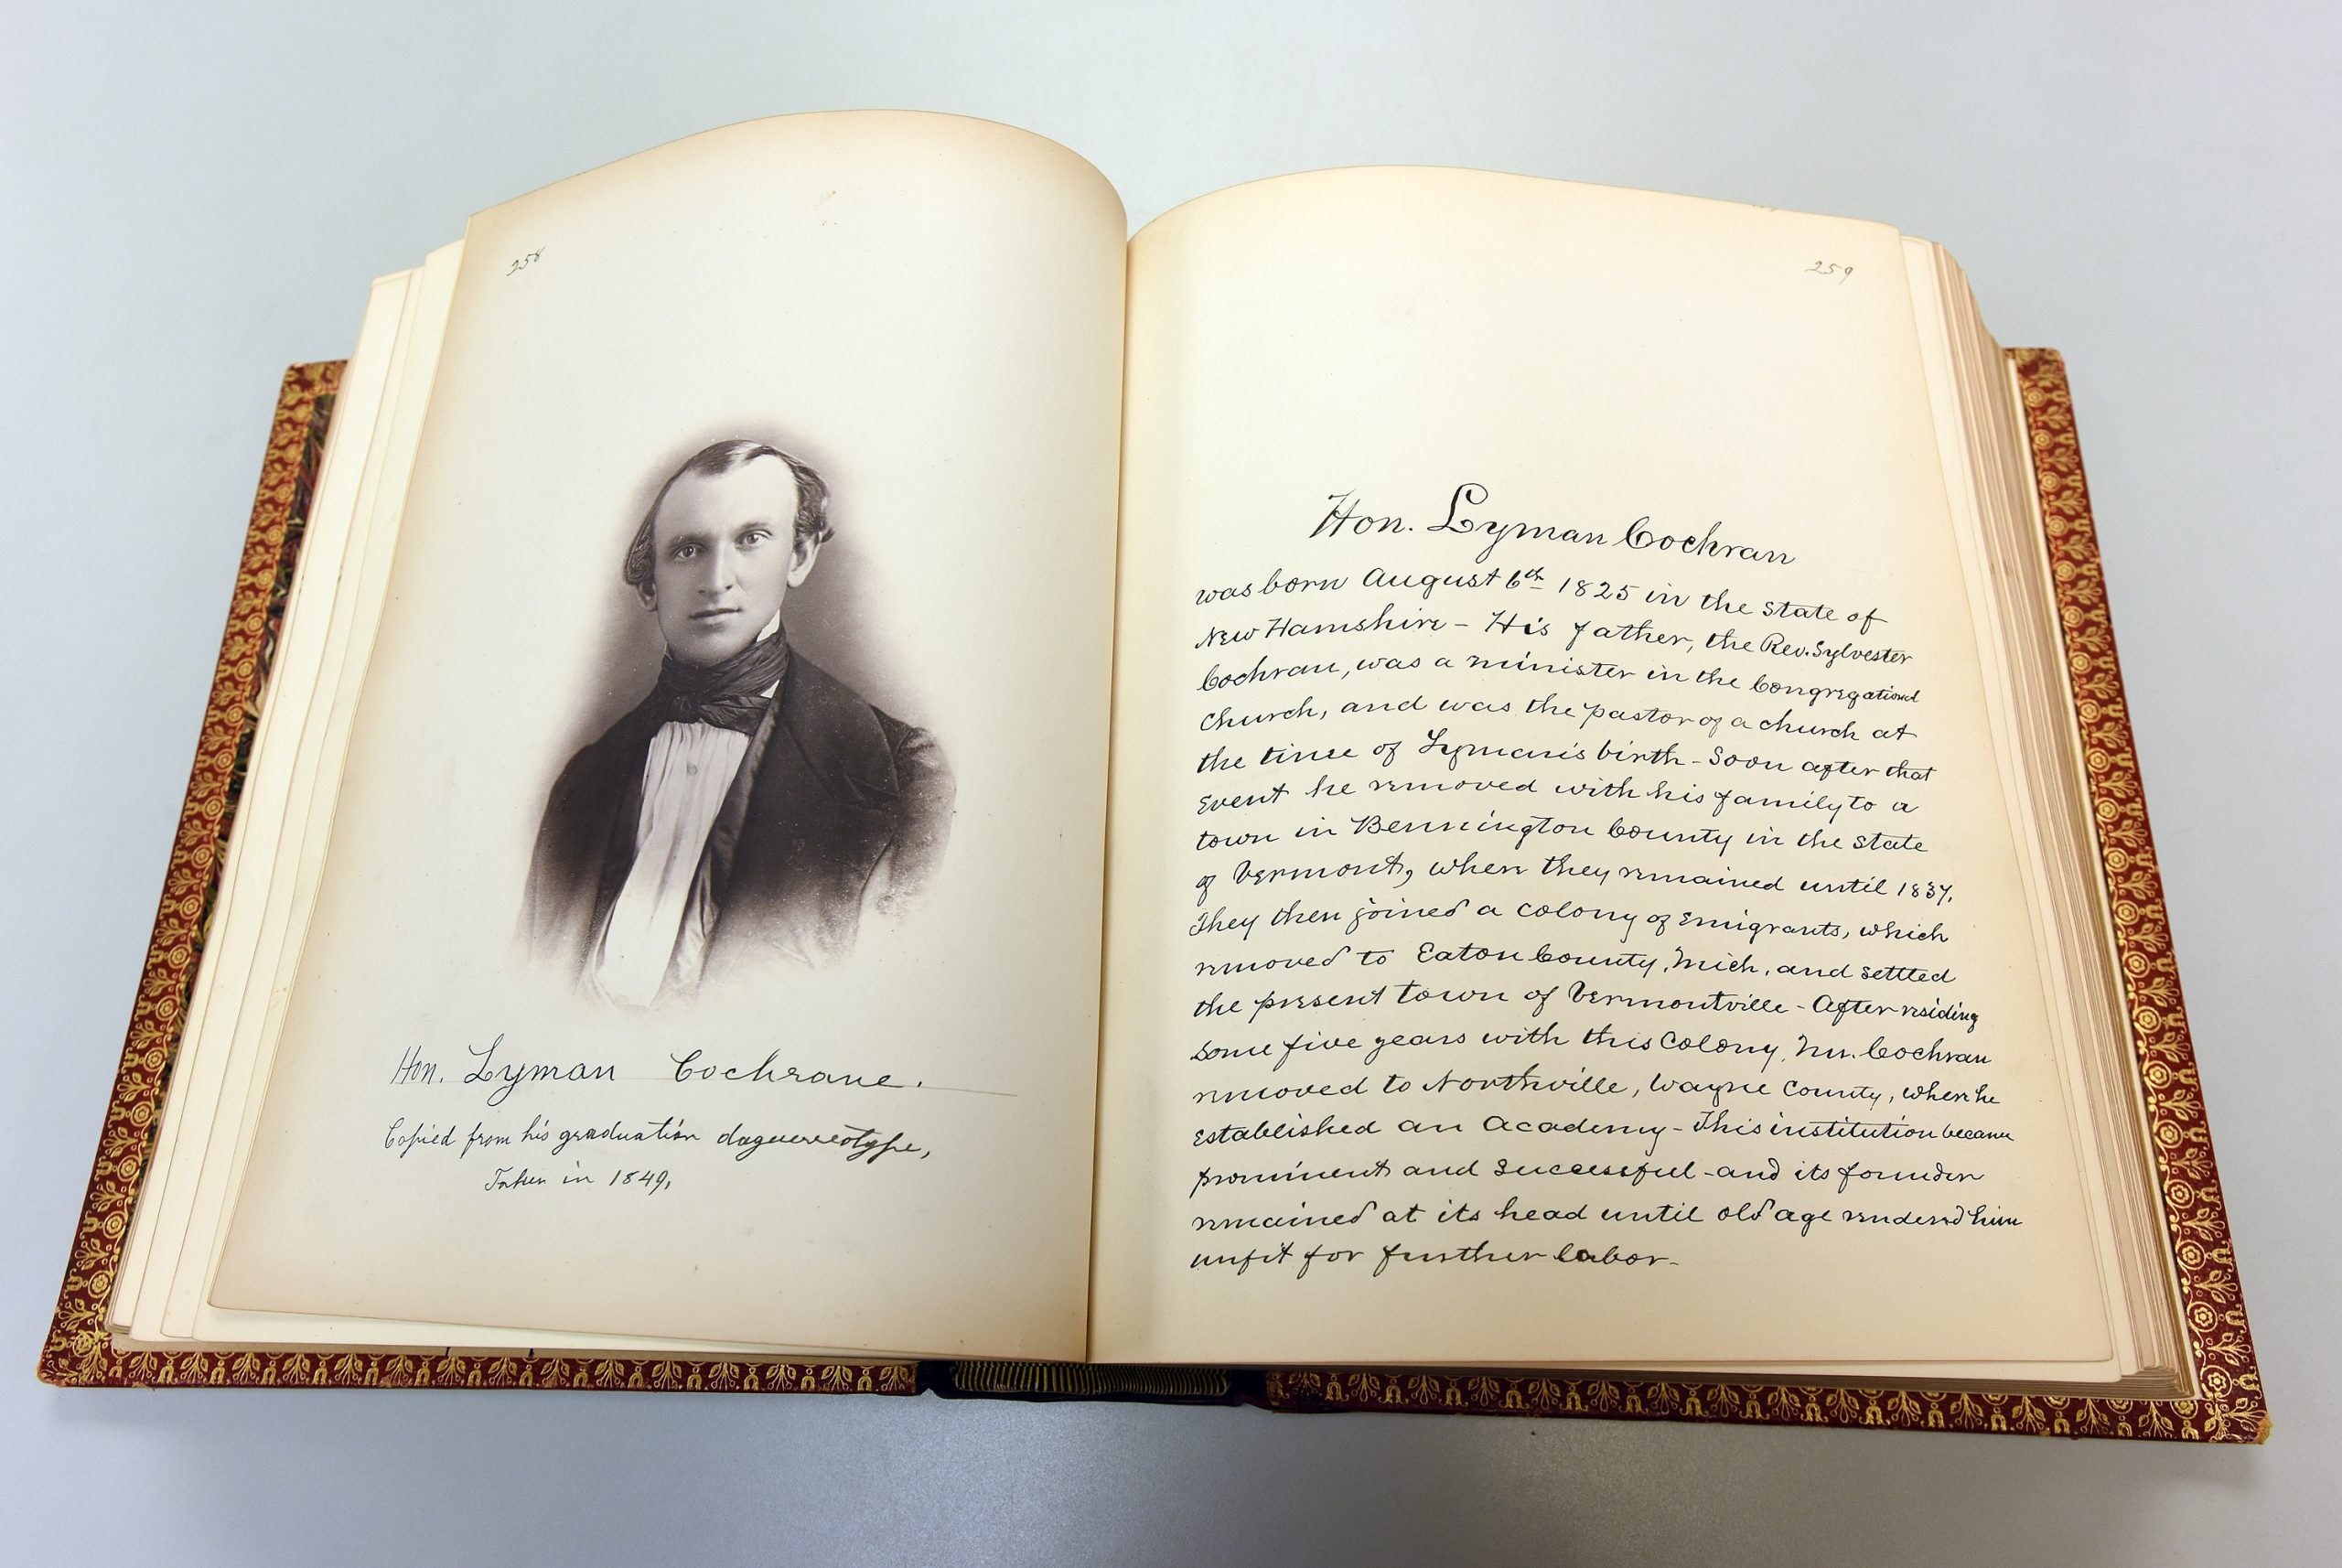 258
Hon. Lyman Cochrane.
Copied from his graduation daguerreotype,
Taken in 1849,
259
Hon. Lyman Cochran
was born August 6th 1825 in the state of
New Hamshire - His father, the Rev. Sylvester
Cochran, was a minister in the Congregational
Church, and was the pastor of a church at
the time of Lyman's birth - Soon after that
Event he removed with his family to a
town in Bennington County in the state
of Vermont, where they remained until 1837.
They then joined a colony of Emigrants, which
removed to Eaton County, Mich, and settled
the present town of Vermontville - After residing
some five years with this Colony, Mr. Cochran
removed to Northville, Wayne County, where he
Established an Academy - This institution became
prominent and successful - and its founder
remained at its head until old age rendered him
unfit for further labor -